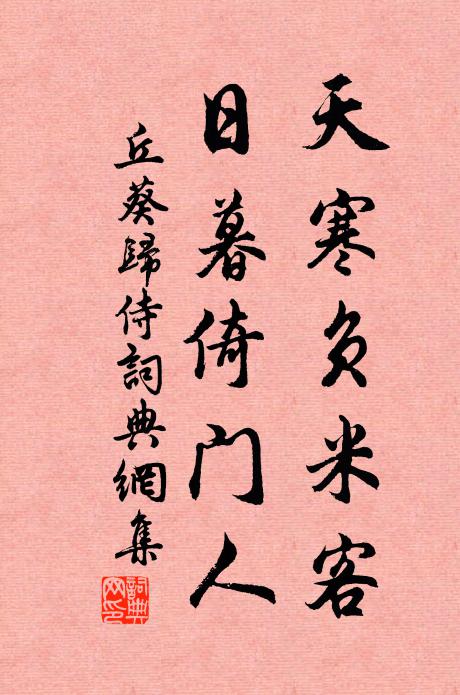 天寒负米客
日暮倚门人
丘葵歸侍詞典網集
詞典
网印